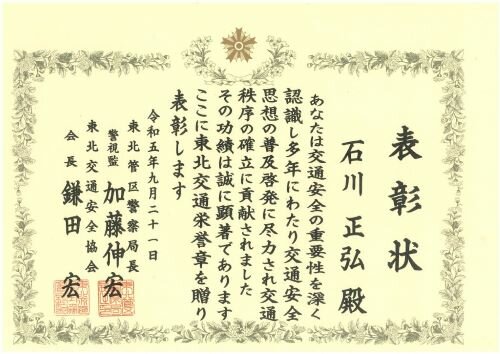 表彰状
石川 正弘 殿
あなたは交通安全の重要性を深く
認識し多年にわたり交通安全
思想の普及啓発に尽力され交通
秩序の確立に貢献されました
その功績は誠に顕著であります
ここに東北交通栄誉章を贈り
表彰します
令和五年九月二十一日
東北管区警察局長
警視監 加藤伸宏
東北交通安全協会
会長 鎌田 宏